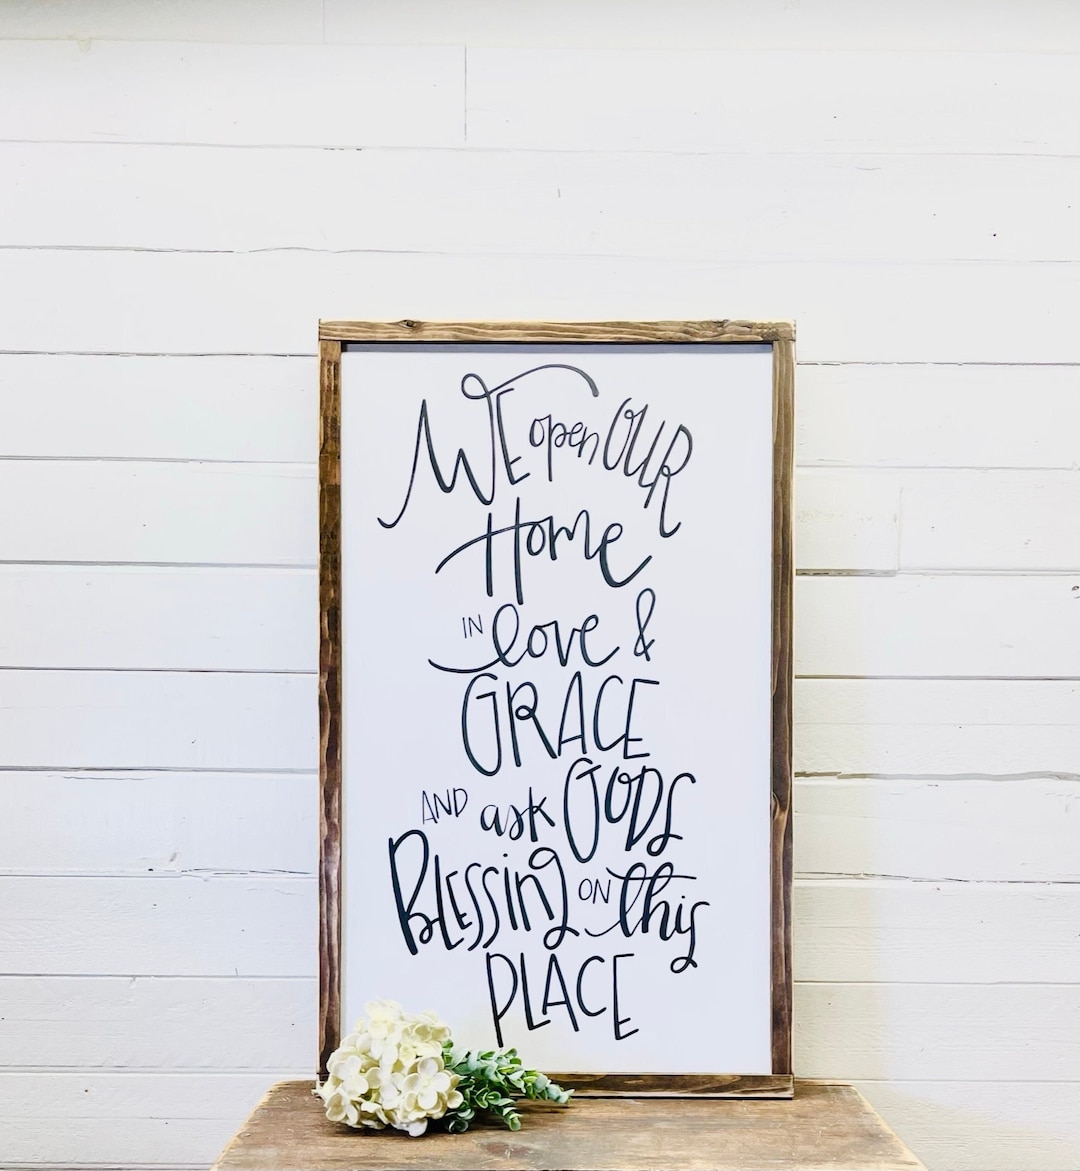 WE open OUR
Home
IN love &
GRACE
AND ask GODS
BLESSING ON this
PLACE